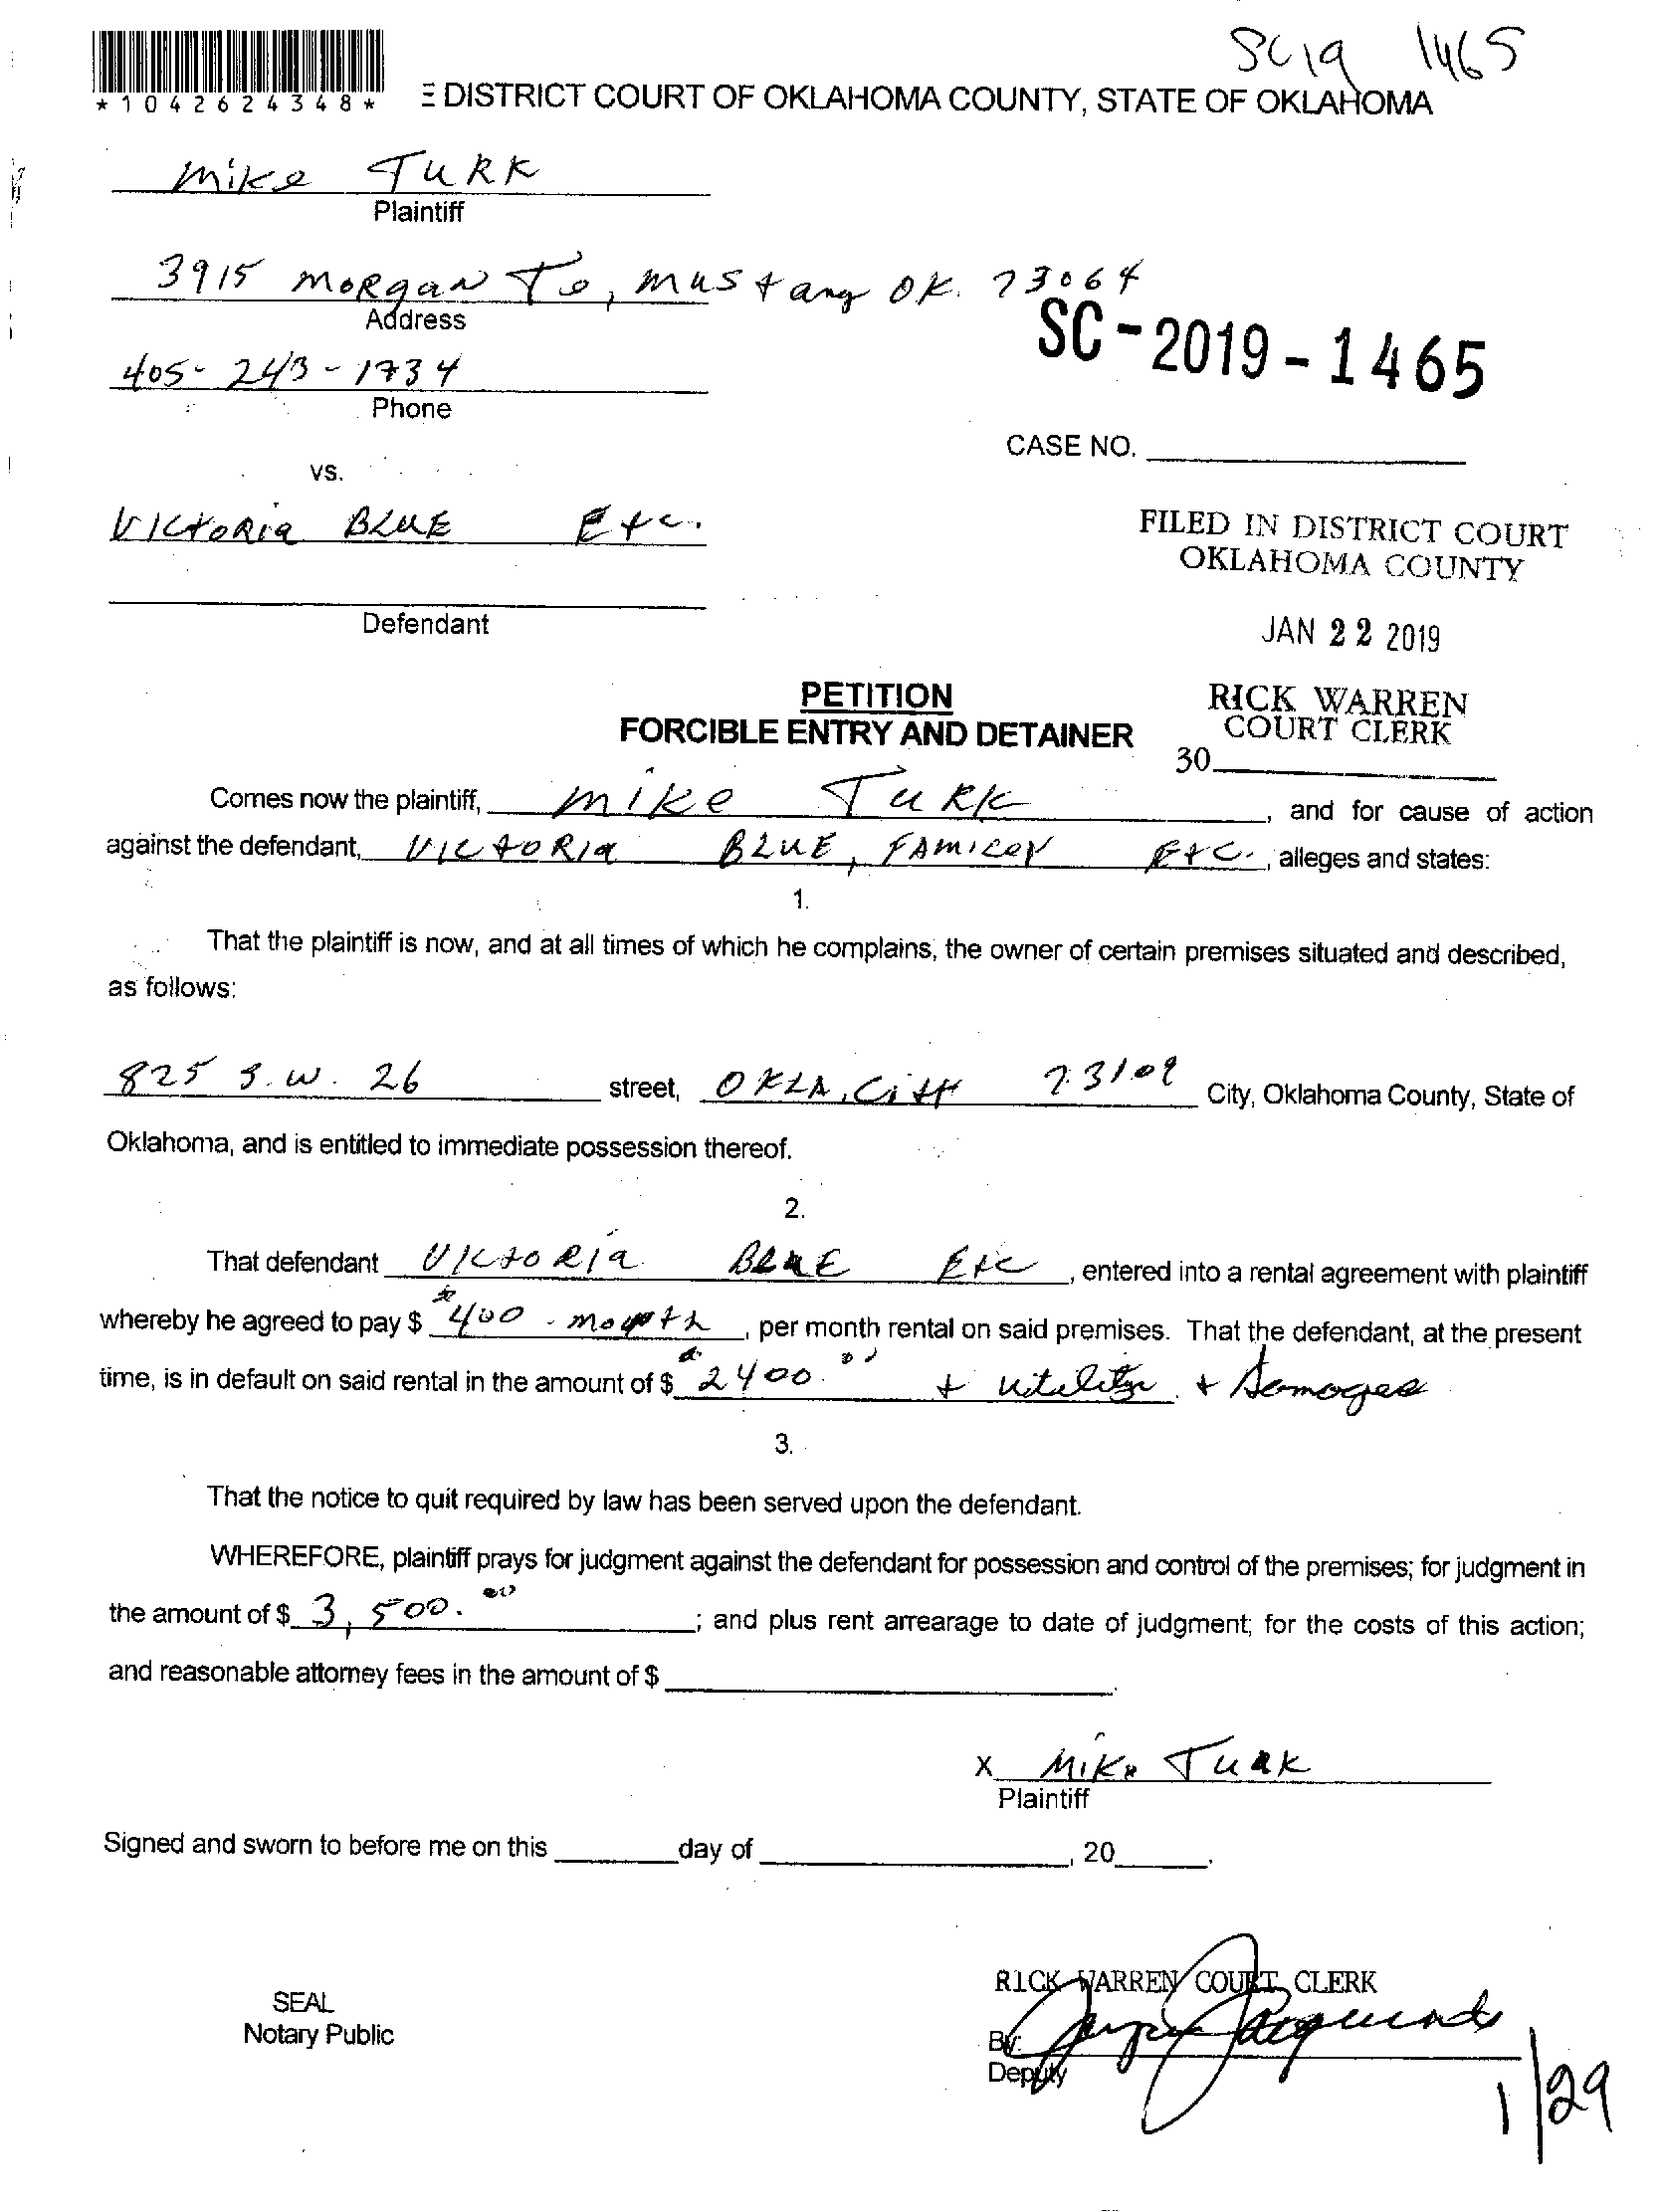 SC19 1465
*1042624348*
E DISTRICT COURT OF OKLAHOMA COUNTY, STATE OF OKLAHOMA
Mike Turk
Plaintiff
3915 Morgan , Mustang OK. 73064
Address
SC-2019-1465
405-243-1734
Phone
CASE NO.
vs.
Victoria Blue Etc.
FILED IN DISTRICT COURT
OKLAHOMA COUNTY
Defendant
JAN 22 2019
PETITION
FORCIBLE ENTRY AND DETAINER
RICK WARREN
COURT CLERK
30
Comes now the plaintiff, Mike Turk, and for cause of action
against the defendant, Victoria Blue, Etc., alleges and states:
1.
That the plaintiff is now, and at all times of which he complains, the owner of certain premises situated and described,
as follows:
825 S.W. 26 street, Okla. City 73109 City, Oklahoma County, State of
Oklahoma, and is entitled to immediate possession thereof.
2.
That defendant Victoria Blue Etc, entered into a rental agreement with plaintiff
whereby he agreed to pay $ 400 - month, per month rental on said premises. That the defendant, at the present
time, is in default on said rental in the amount of $ 2400.00 + + Damages
3.
That the notice to quit required by law has been served upon the defendant.
WHEREFORE, plaintiff prays for judgment against the defendant for possession and control of the premises; for judgment in
the amount of $ 3,500.00; and plus rent arrearage to date of judgment; for the costs of this action;
and reasonable attorney fees in the amount of $ .
X Mike Turk
Plaintiff
Signed and sworn to before me on this day of , 20 .
RICK WARREN COURT CLERK
SEAL
Notary Public
By:
Deputy
1/29